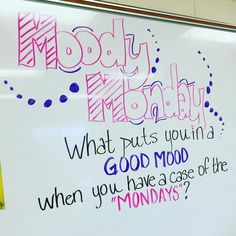 Moody
Monday
What puts you in a
GOOD MOOD
when you have a case of the
"MONDAYS"?